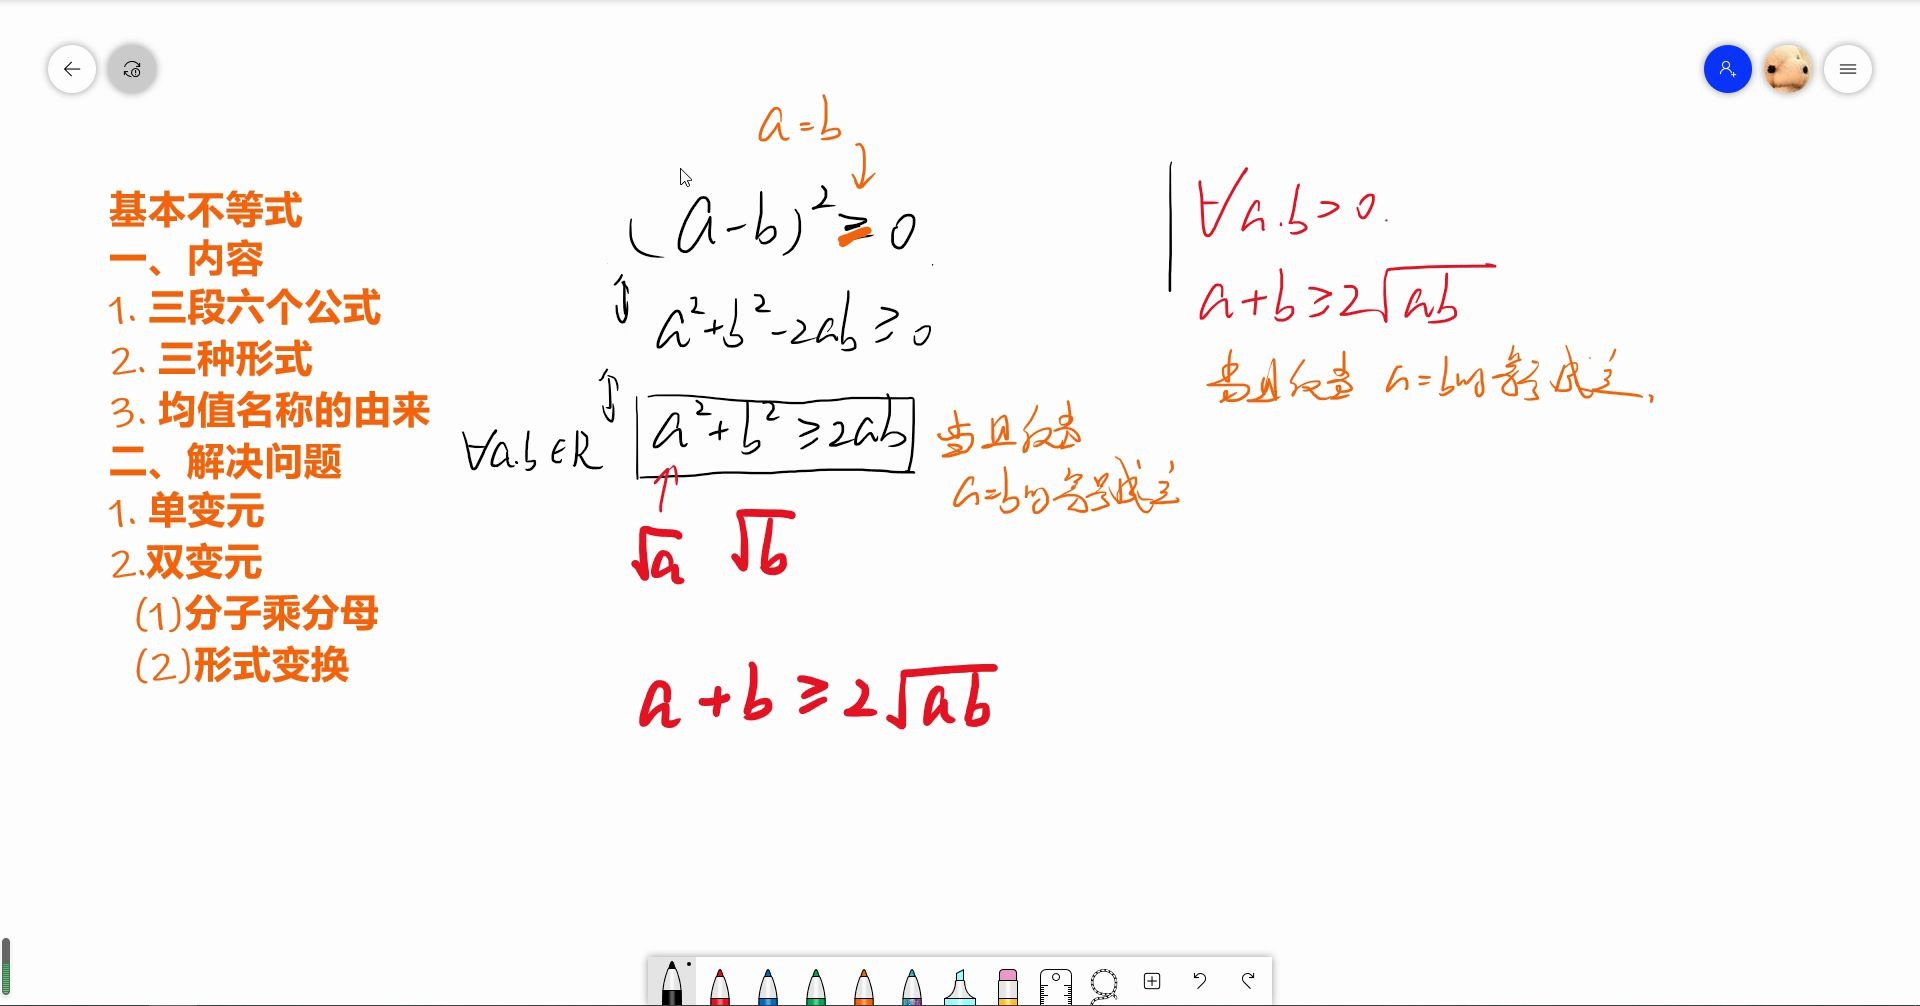 基本不等式
一、内容
1. 三段六个公式
2. 三种形式
3. 均值名称的由来
二、解决问题
1. 单变元
2.双变元
(1)分子乘分母
(2)形式变换
a=b
(a-b)²≥0
a²+b²-2ab≥0
∀a.b∈R a²+b²≥2ab
当且仅当
a=b时等号成立
√a √b
a+b≥2√ab
∀a.b>0.
a+b≥2√ab
当且仅当 a=b时等号成立.